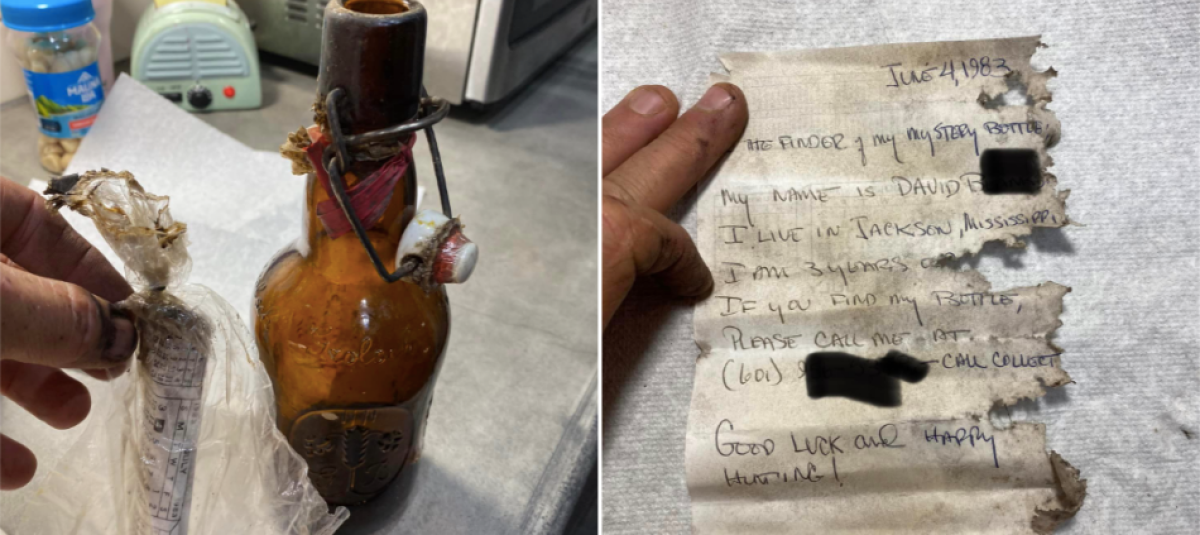 MAUNA
JUNE 4, 1983
THE FINDER of my MYSTERY BOTTLE
MY NAME IS DAVID B
I LIVE IN JACKSON, MISSISSIPPI,
I AM 3 YEARS
IF YOU FIND MY BOTTLE,
PLEASE CALL ME AT.
(601) CALL COLLECT
GOOD LUCK and HAPPY
HUNTING!